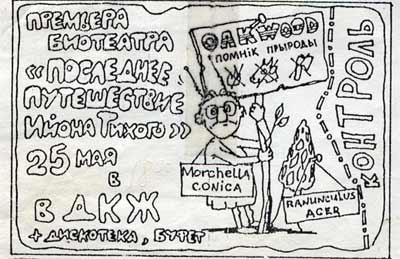 ПРЕМЬЕРА
БИОТЕАТРА
«ПОСЛЕДНЕЕ
ПУТЕШЕСТВИЕ
ИЙОНА ТИХОГО»
25 МАЯ
В
ВДКЖ
+ ДИСКОТЕКА, БУФЕТ
OAKWOOD
ПОМНІК ПРЫРОДЫ
Morchella
CONICA
RANUNCULUS
ACER
КОНТРОЛЬ